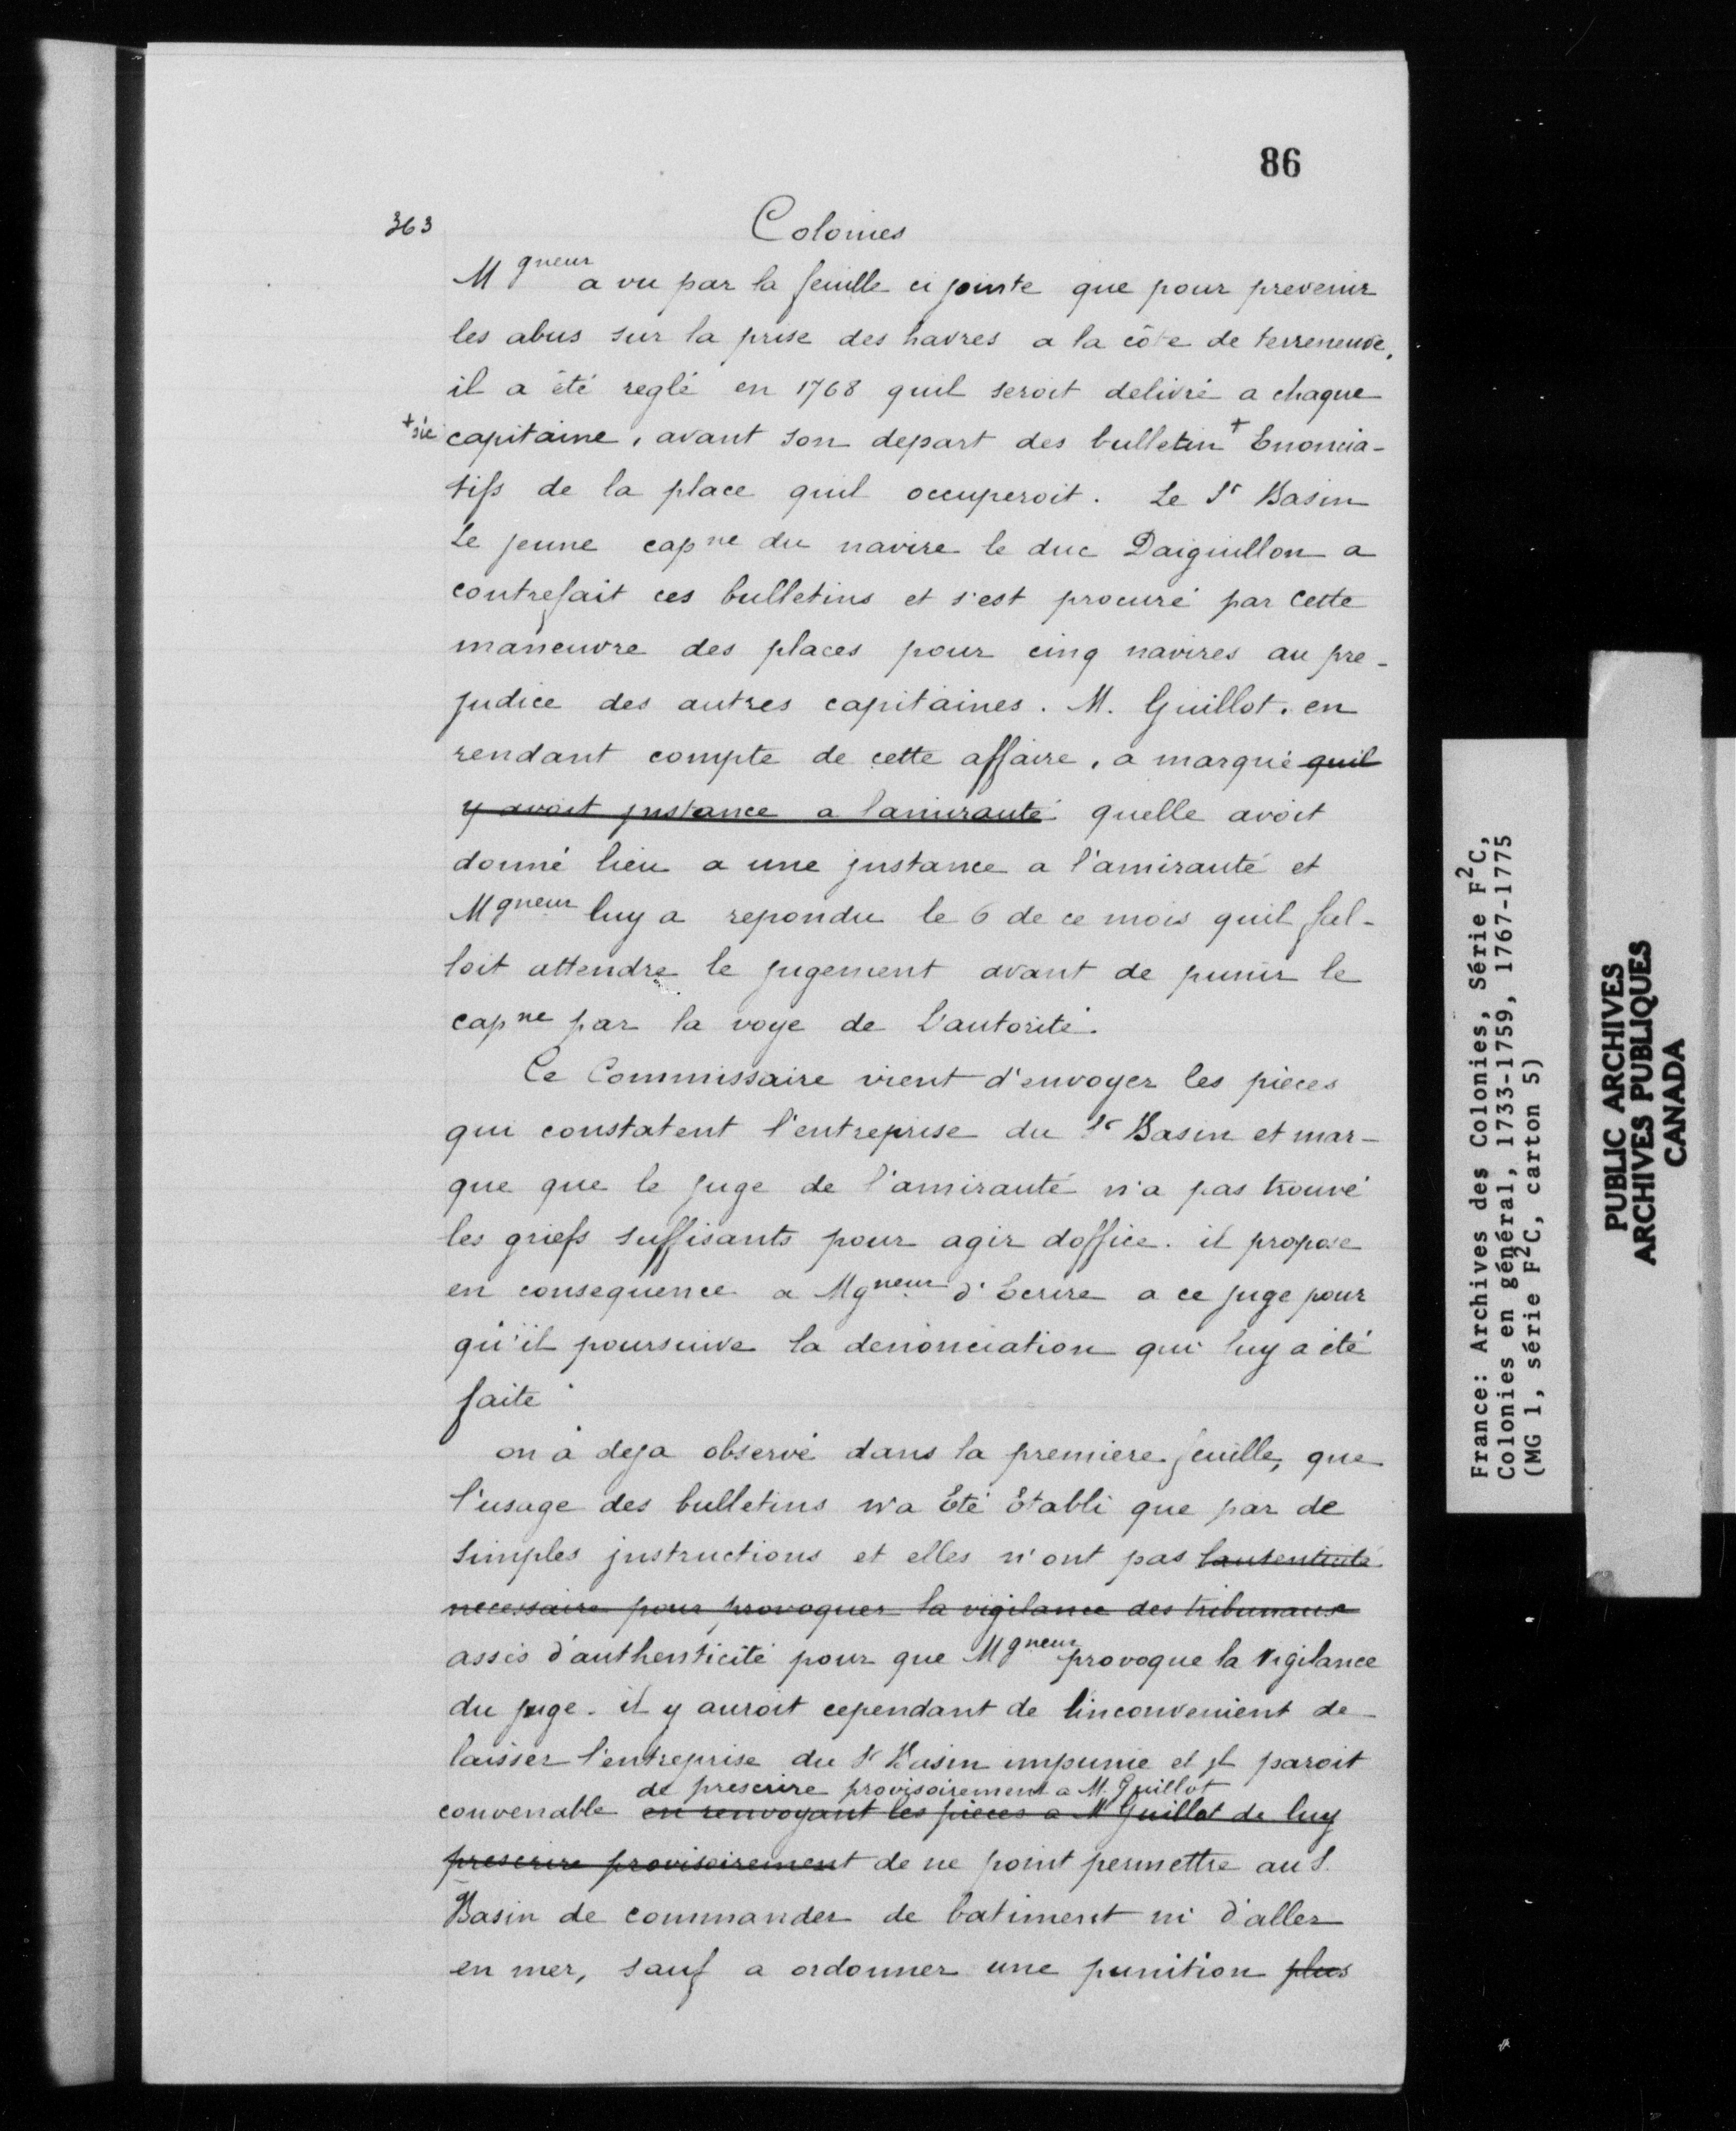 86
363
Colonies
Mgneur a vu par la feuille ci jointe que pour prevenir
les abus sur la prise des havres a la côte de terreneuve,
il a été reglé en 1768 quil seroit delivré a chaque
+sic capitaine, avant son depart des bulletin+ Enoncia-
tifs de la place quil occuperoit. Le Sr Basin
Le jeune capne du navire le duc Daiguillon a
contrefait ces bulletins et s'est procuré par cette
maneuvre des places pour cinq navires au pre-
judice des autres capitaines. M. Guillot, en
rendant compte de cette affaire, a marqué quil
y avoit jnstance a lamirauté quelle avoit
donné lieu a une jnstance a l'amirauté et
Mgneur luy a repondu le 6 de ce mois quil fal-
loit attendre le jugement avant de punir le
capne par la voye de L'autorité.
Ce Commissaire vient d'envoyer les pieces
qui constatent l'entreprise du Sr Basin et mar-
que que le juge de l'amirauté n'a pas trouvé
les griefs suffisants pour agir doffice. il propose
en consequence a Mgneur d'Ecrire a ce juge pour
qu'il poursuive la denonciation qui luy a été
faite
on a deja observé dans la premiere feuille, que
l'usage des bulletins n'a Eté Etabli que par de
simples jnstructions et elles n'ont pas lautenticité
necessaire pour provoquer la vigilance des tribunaux
assés d'authenticité pour que Mgneur provoque la vigilance
du juge. il y auroit cependant de linconvenient de
laisser l'entreprise du Sr Basin impunie et jl paroit
de prescrire provisoirement a M. Guillot
convenable en renvoyant les pieces a M Guillot de luy
prescrire provisoirement de ne point permettre au S.
Basin de commander de batiment ni d'aller
en mer, sauf a ordonner une punition plus
France: Archives des Colonies, Série F2C,
Colonies en général, 1733-1759, 1767-1775
(MG 1, série F2C, carton 5)
PUBLIC ARCHIVES
ARCHIVES PUBLIQUES
CANADA